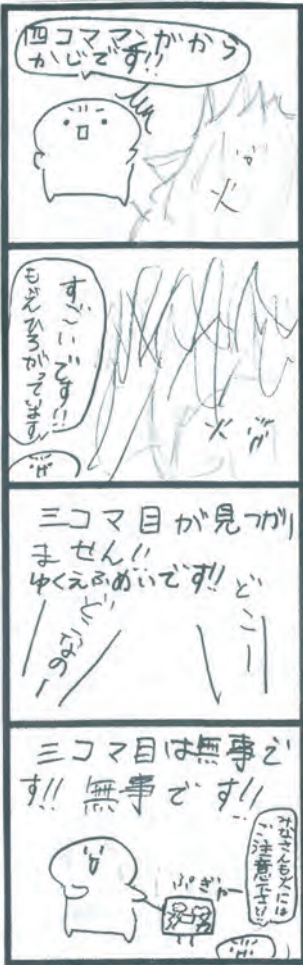 四コママンガから
かじです!!
火
すごいです!!
もえひろがっています
火
三コマ目が見つかり
ません!!
ゆくえふめいです!!
どこー
どこなのー
三コマ目は無事で
す!! 無事です!!
ぷぎゃー
みなさんも火には
ご注意下さい!!